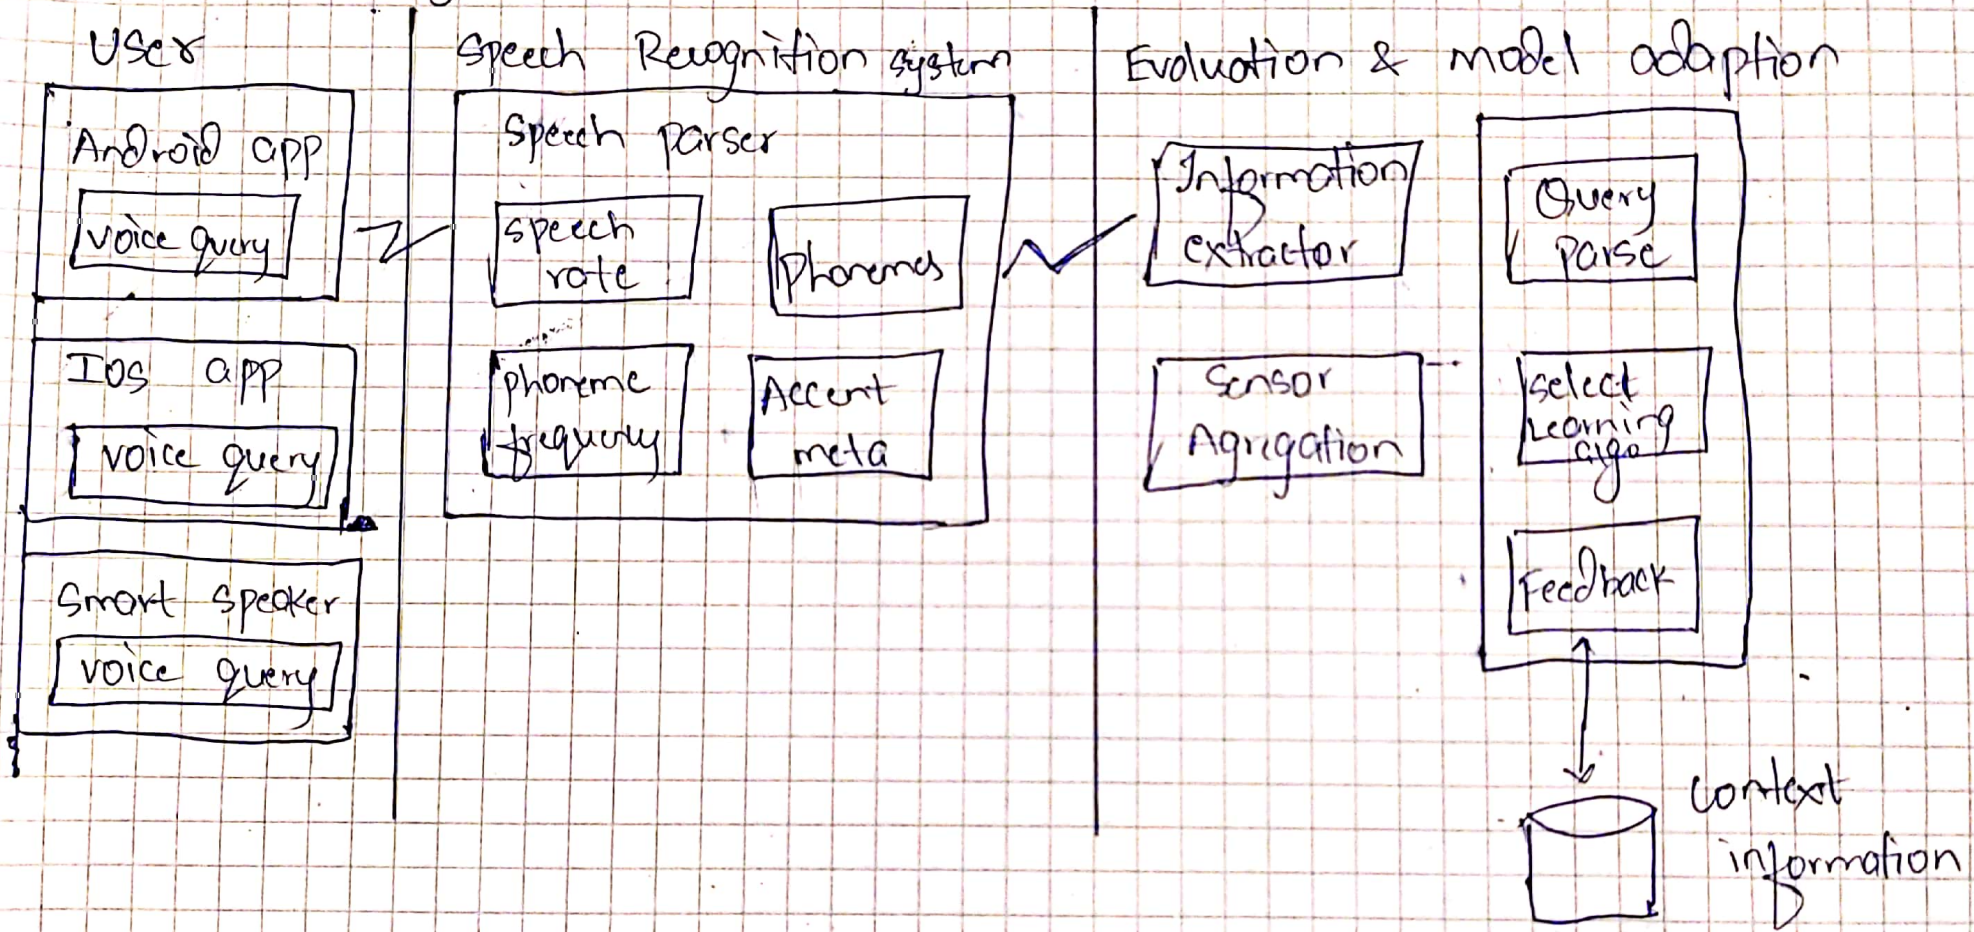 User
Android app
voice query
Ios app
voice query
Smart speaker
voice query
Speech Recognition system
Speech parser
speech
rate
phonemes
phoneme
frequency
Accent
meta
Evaluation & model adaption
Information
extractor
Sensor
Agrigation
Query
parse
select
Learning
algo
Feedback
context
information